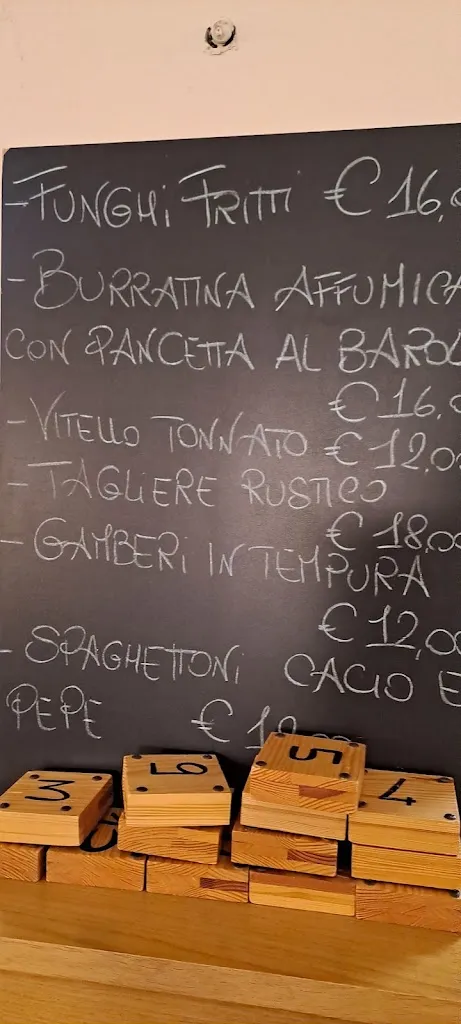 - FUNGHI FRITTI € 16,0
- BURRATINA AFFUMICA
CON PANCETTA AL BAROL
€ 16,0
- VITELLO TONNATO € 12,00
- TAGLIERE RUSTICO
€ 18,00
- GAMBERI IN TEMPURA
€ 12,00
- SPAGHETTONI CACIO E
PEPE €
3 6 5 4